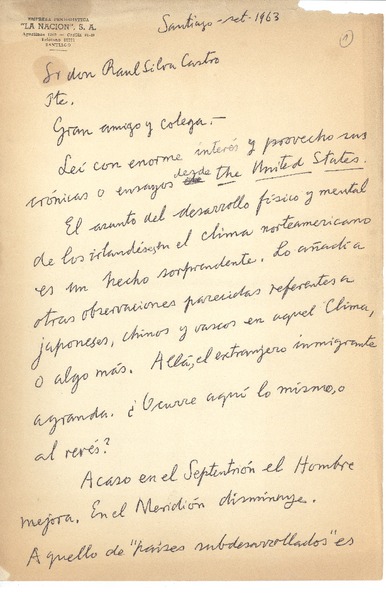 EMPRESA PERIODISTICA
"LA NACION", S. A.
SANTIAGO
Santiago - set - 1963
1
Sr don Raul Silva Castro
Pte.
Gran amigo y colega.-
Leí con enorme interés y provecho sus
crónicas o ensayos desde the United States.
El asunto del desarrollo físico y mental
de los irlandeses en el clima norteamericano
es un hecho sorprendente. Lo añadí a
otras observaciones parecidas referentes a
japoneses, chinos y vascos en aquel Clima,
o algo más. Allá, el extranjero inmigrante
agranda. ¿Ocurre aquí lo mismo, o
al revés?
Acaso en el Septentrión el Hombre
mejora. En el Meridión disminuye.
Aquello de "países subdesarrollados" es